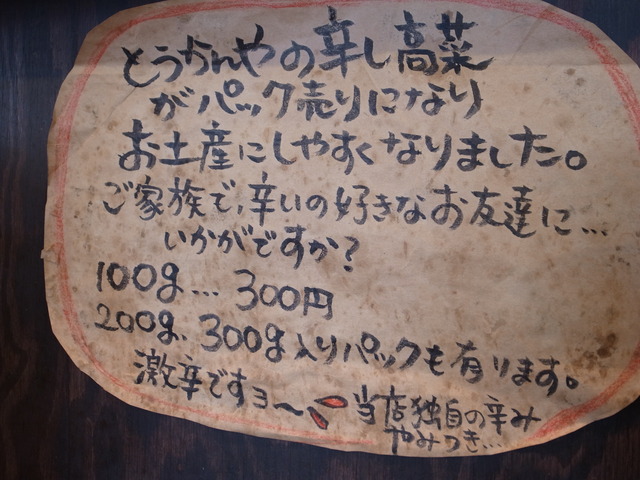 とうかんやの辛し高菜
がパック売りになり
お土産にしやすくなりました。
ご家族で,辛いの好きなお友達に…
いかがですか?
100g… 300円
200g. 300g入りパックも有ります。
激辛ですョ〜 当店独自の辛み
やみつき…